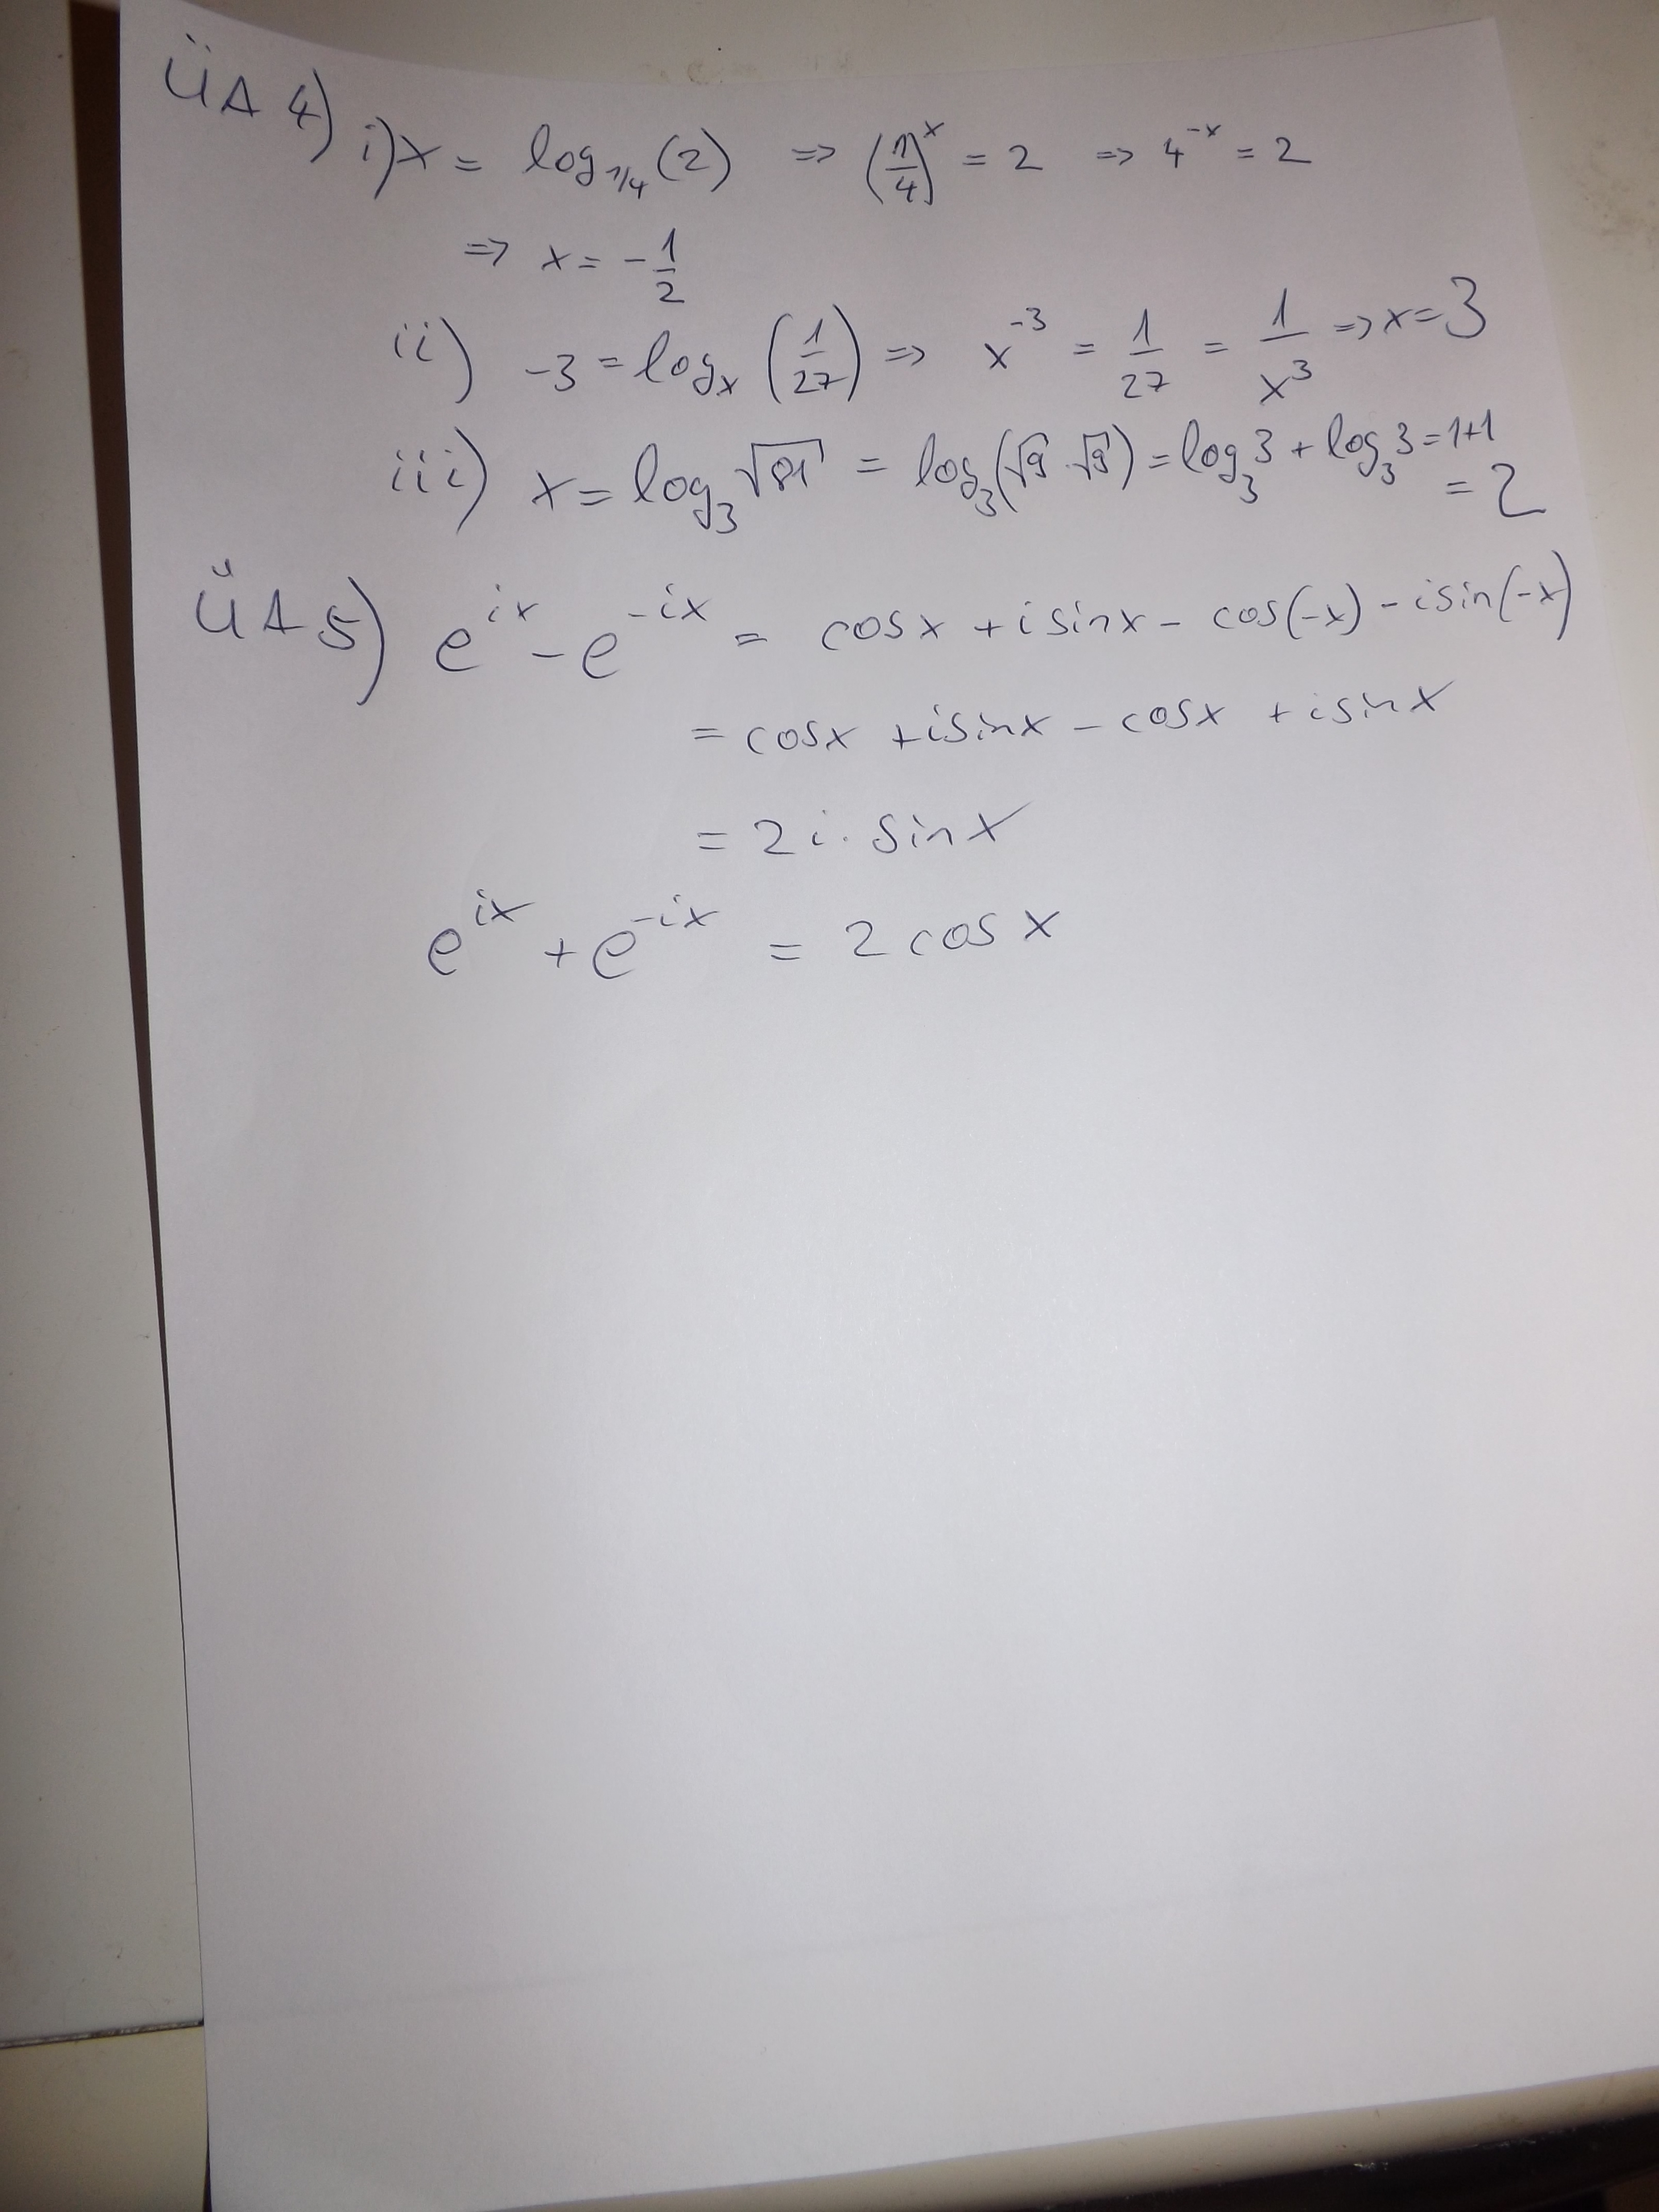 ÜA 4) i) x = log_{1/4}(2) => (1/4)^x = 2 => 4^{-x} = 2
=> x = -1/2
ii) -3 = log_x (1/27) => x^{-3} = 1/27 = 1/x^3 => x = 3
iii) x = log_3 √81 = log_3(√9 · √9) = log_3 3 + log_3 3 = 1+1
= 2
ÜA 5) e^{ix} - e^{-ix} = cosx + isinx - cos(-x) - isin(-x)
= cosx + isinx - cosx + isinx
= 2i · sinx
e^{ix} + e^{-ix} = 2 cosx